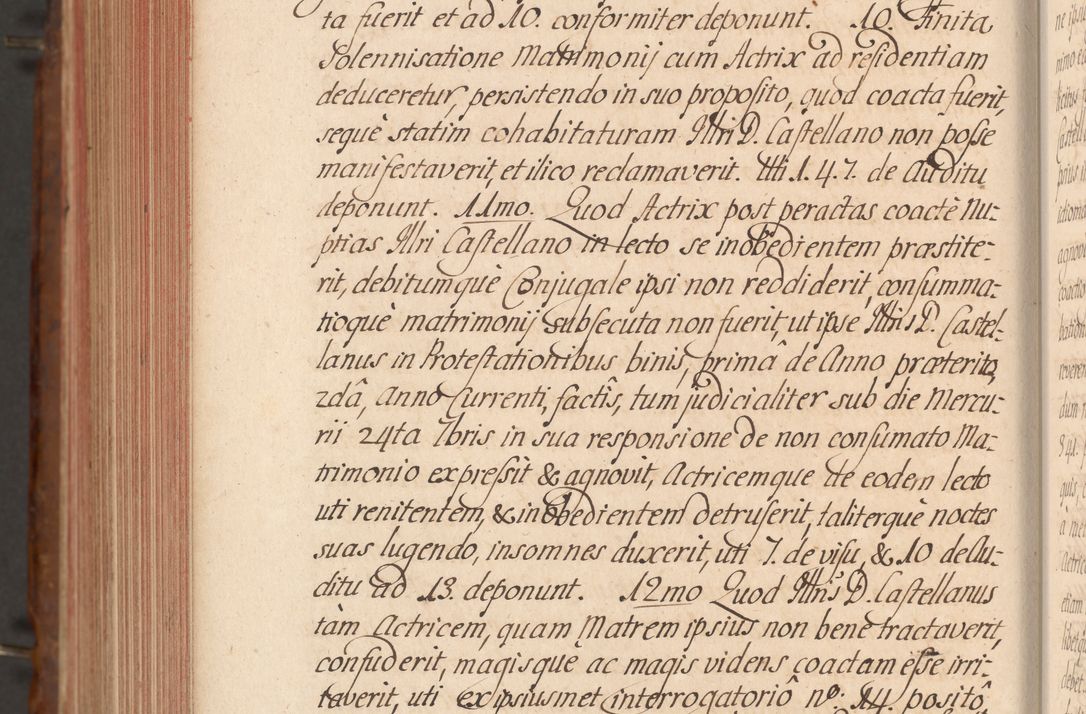 ta fuerit et ad 10. conformiter deponunt. 10. Finita
Solennisatione Matrimonij cum Actrix ad residentiam
deduceretur, persistendo in suo proposito, quod coacta fuerit,
sequè statim cohabitaturam Illri D. Castellano non posse
manifestaverit, et ilico reclamaverit. Uti 1. 4. 7. de Auditu
deponunt. 11mo. Quod Actrix post peractas coactè Nu-
ptias Illri Castellano in lecto se inobedientem præstite-
rit, debitumquè Conjugale ipsi non reddiderit, consumma-
tioquè matrimonij subsecuta non fuerit, ut ipse Illris D. Castel-
lanus in Protestationibus binis, primâ de Anno præterito,
2dâ, Anno Currenti, factis, tum judicialiter sub die Mercu-
rii 24ta 7bris in sua responsione de non consumato Ma-
trimonio expressit & agnovit, Actricemque de eodem lecto
uti renitentem, & inobedientem detruserit, taliterquè noctes
suas lugendo, insomnes duxerit, uti 7. de visu, & 10 de Au-
ditu ad 13. deponunt. 12mo Quod Illris D. Castellanus
tàm Actricem, quam Matrem ipsius non benè tractaverit,
confuderit, magisquè ac magis videns coactam esse irri-
taverit, uti ex ipsiusmet interrogatoriô nº: 14. positô,